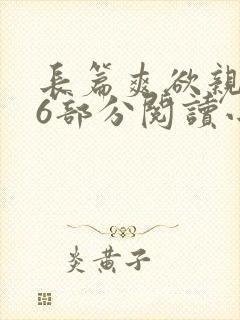 長篇爽欲親
6部分閱讀
炎黃子